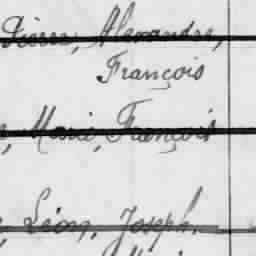 Pierre, Alexandre,
François
, Marie, François
, Léon, Joseph.